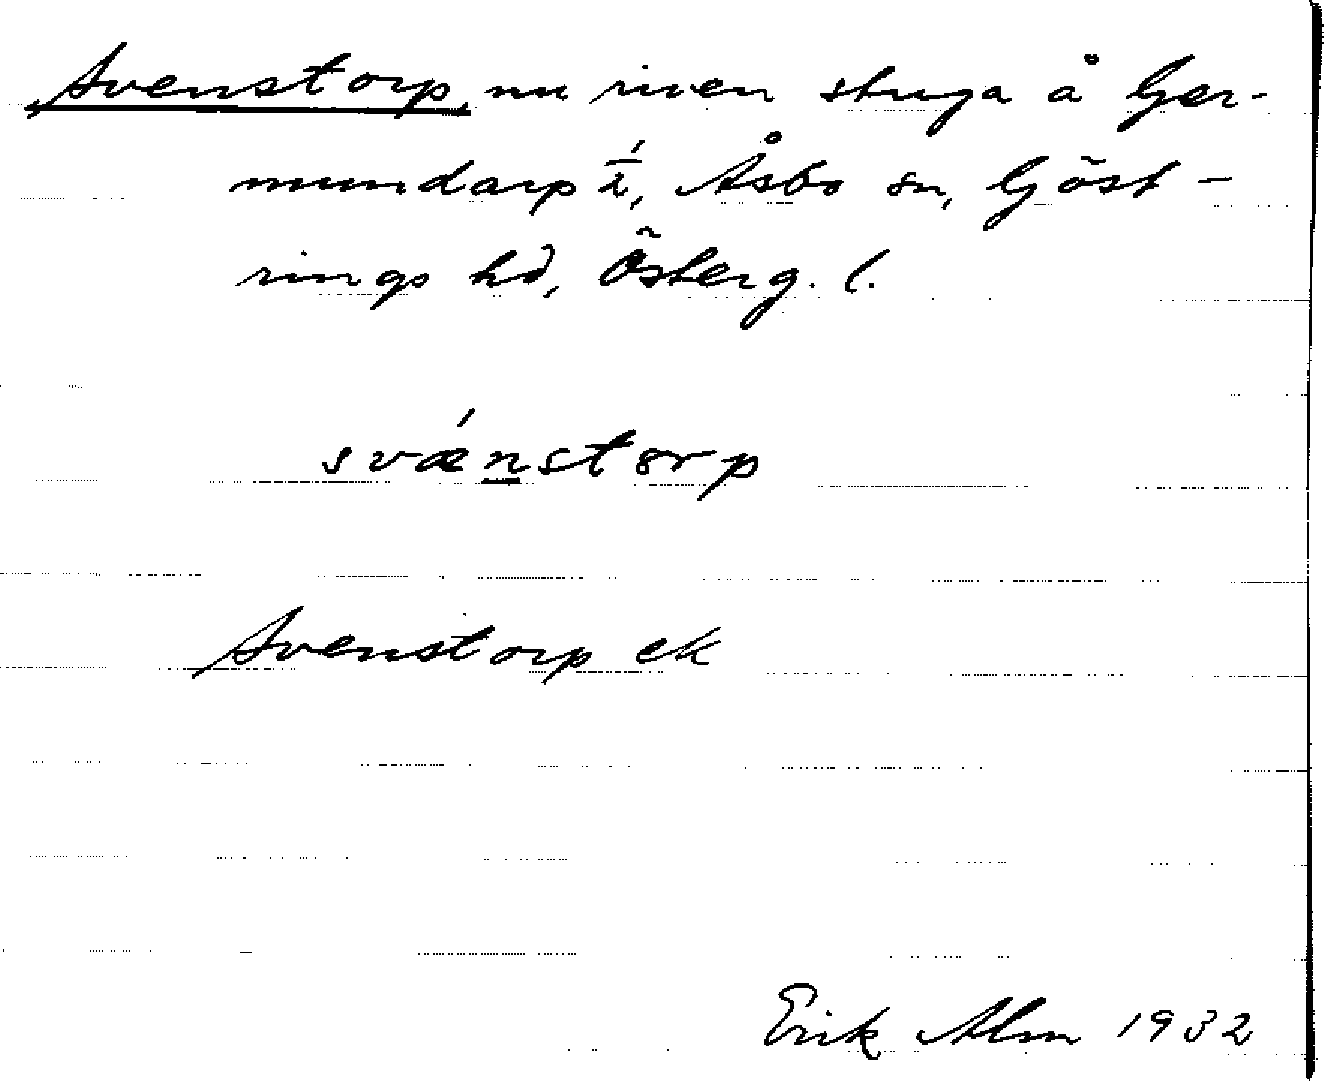 Svenstorp, nu riven stuga å Ger-
mundarp 1/2, Åsbo sn, Göst-
rings hd, Österg. l.
svǽnstorp
Svenstorp ek
Erik Alm 1932